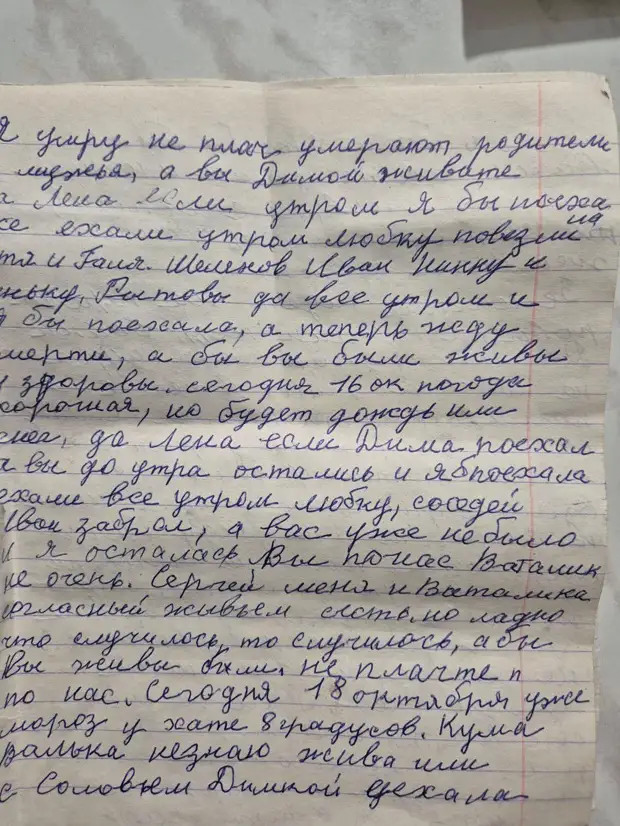 я умру не плач умерают родители
и мужья, а вы Димой живите
а Лена если утром я бы поеха
се ехали утром любку повезли на
тя и Галя. Шеленов Иван Нинку и
ньку, Рытовы да все утром и
я бы поехала, а теперь жду
мерти, а бы вы были живы
и здоровы. сегодня 16 ок погода
хорошая, но будет дождь или
снег, да Лена если Дима поехал
а вы до утра остались и я б поехала
ехали все утром любку, соседей
Иван забрал, а вас уже не было
и я осталась Вы по нас Ваталик
не очень. Сергей меня и Ваталика
согласный живьем сесть, но ладно
что случилось, то случилось, абы
Вы живы были. не плачте п
по нас. Сегодня 18 октября уже
мороз у хате 8 градусов. Кума
Валька незнаю жива или
с Соловьем Димкой уехала